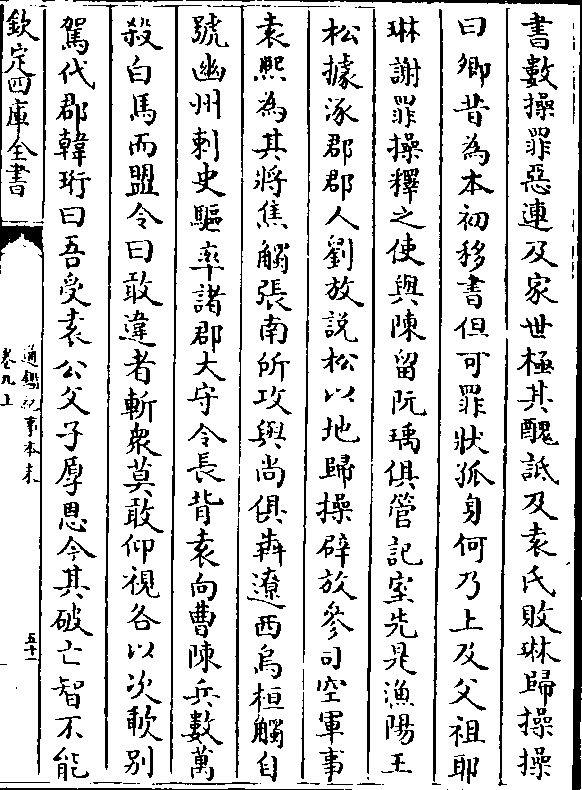 書數操罪惡連及家世極其醜詆及袁氏敗琳歸操操
曰卿昔為本初移書但可罪狀孤身何乃上及父祖耶
琳謝罪操釋之使與陳留阮瑀俱管記室先是漁陽王
松據涿郡郡人劉放說松以地歸操辟放參司空軍事
袁熙為其將焦觸張南所攻與尚俱奔遼西烏桓觸自
號幽州刺史驅率諸郡大守令長背袁向曹陳兵數萬
殺白馬而盟令曰敢違者斬衆莫敢仰視各以次歃別
駕代郡韓珩曰吾受袁公父子厚恩今其破亡智不能
欽定四庫全書
通鑑紀事本末
卷九上
五十一